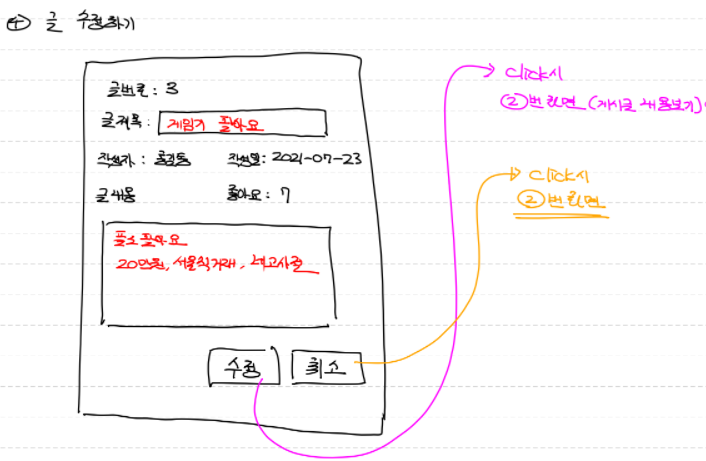 ④ 글 수정하기
글번호 : 3
글제목 : 게임기 팔아요
작성자 : 홍길동 작성일: 2021-07-23
글내용 좋아요 : 7
팔아요
20만원, 서울직거래,
수정 취소
click시
②번화면 (게시글 내용보기)
click시
②번화면